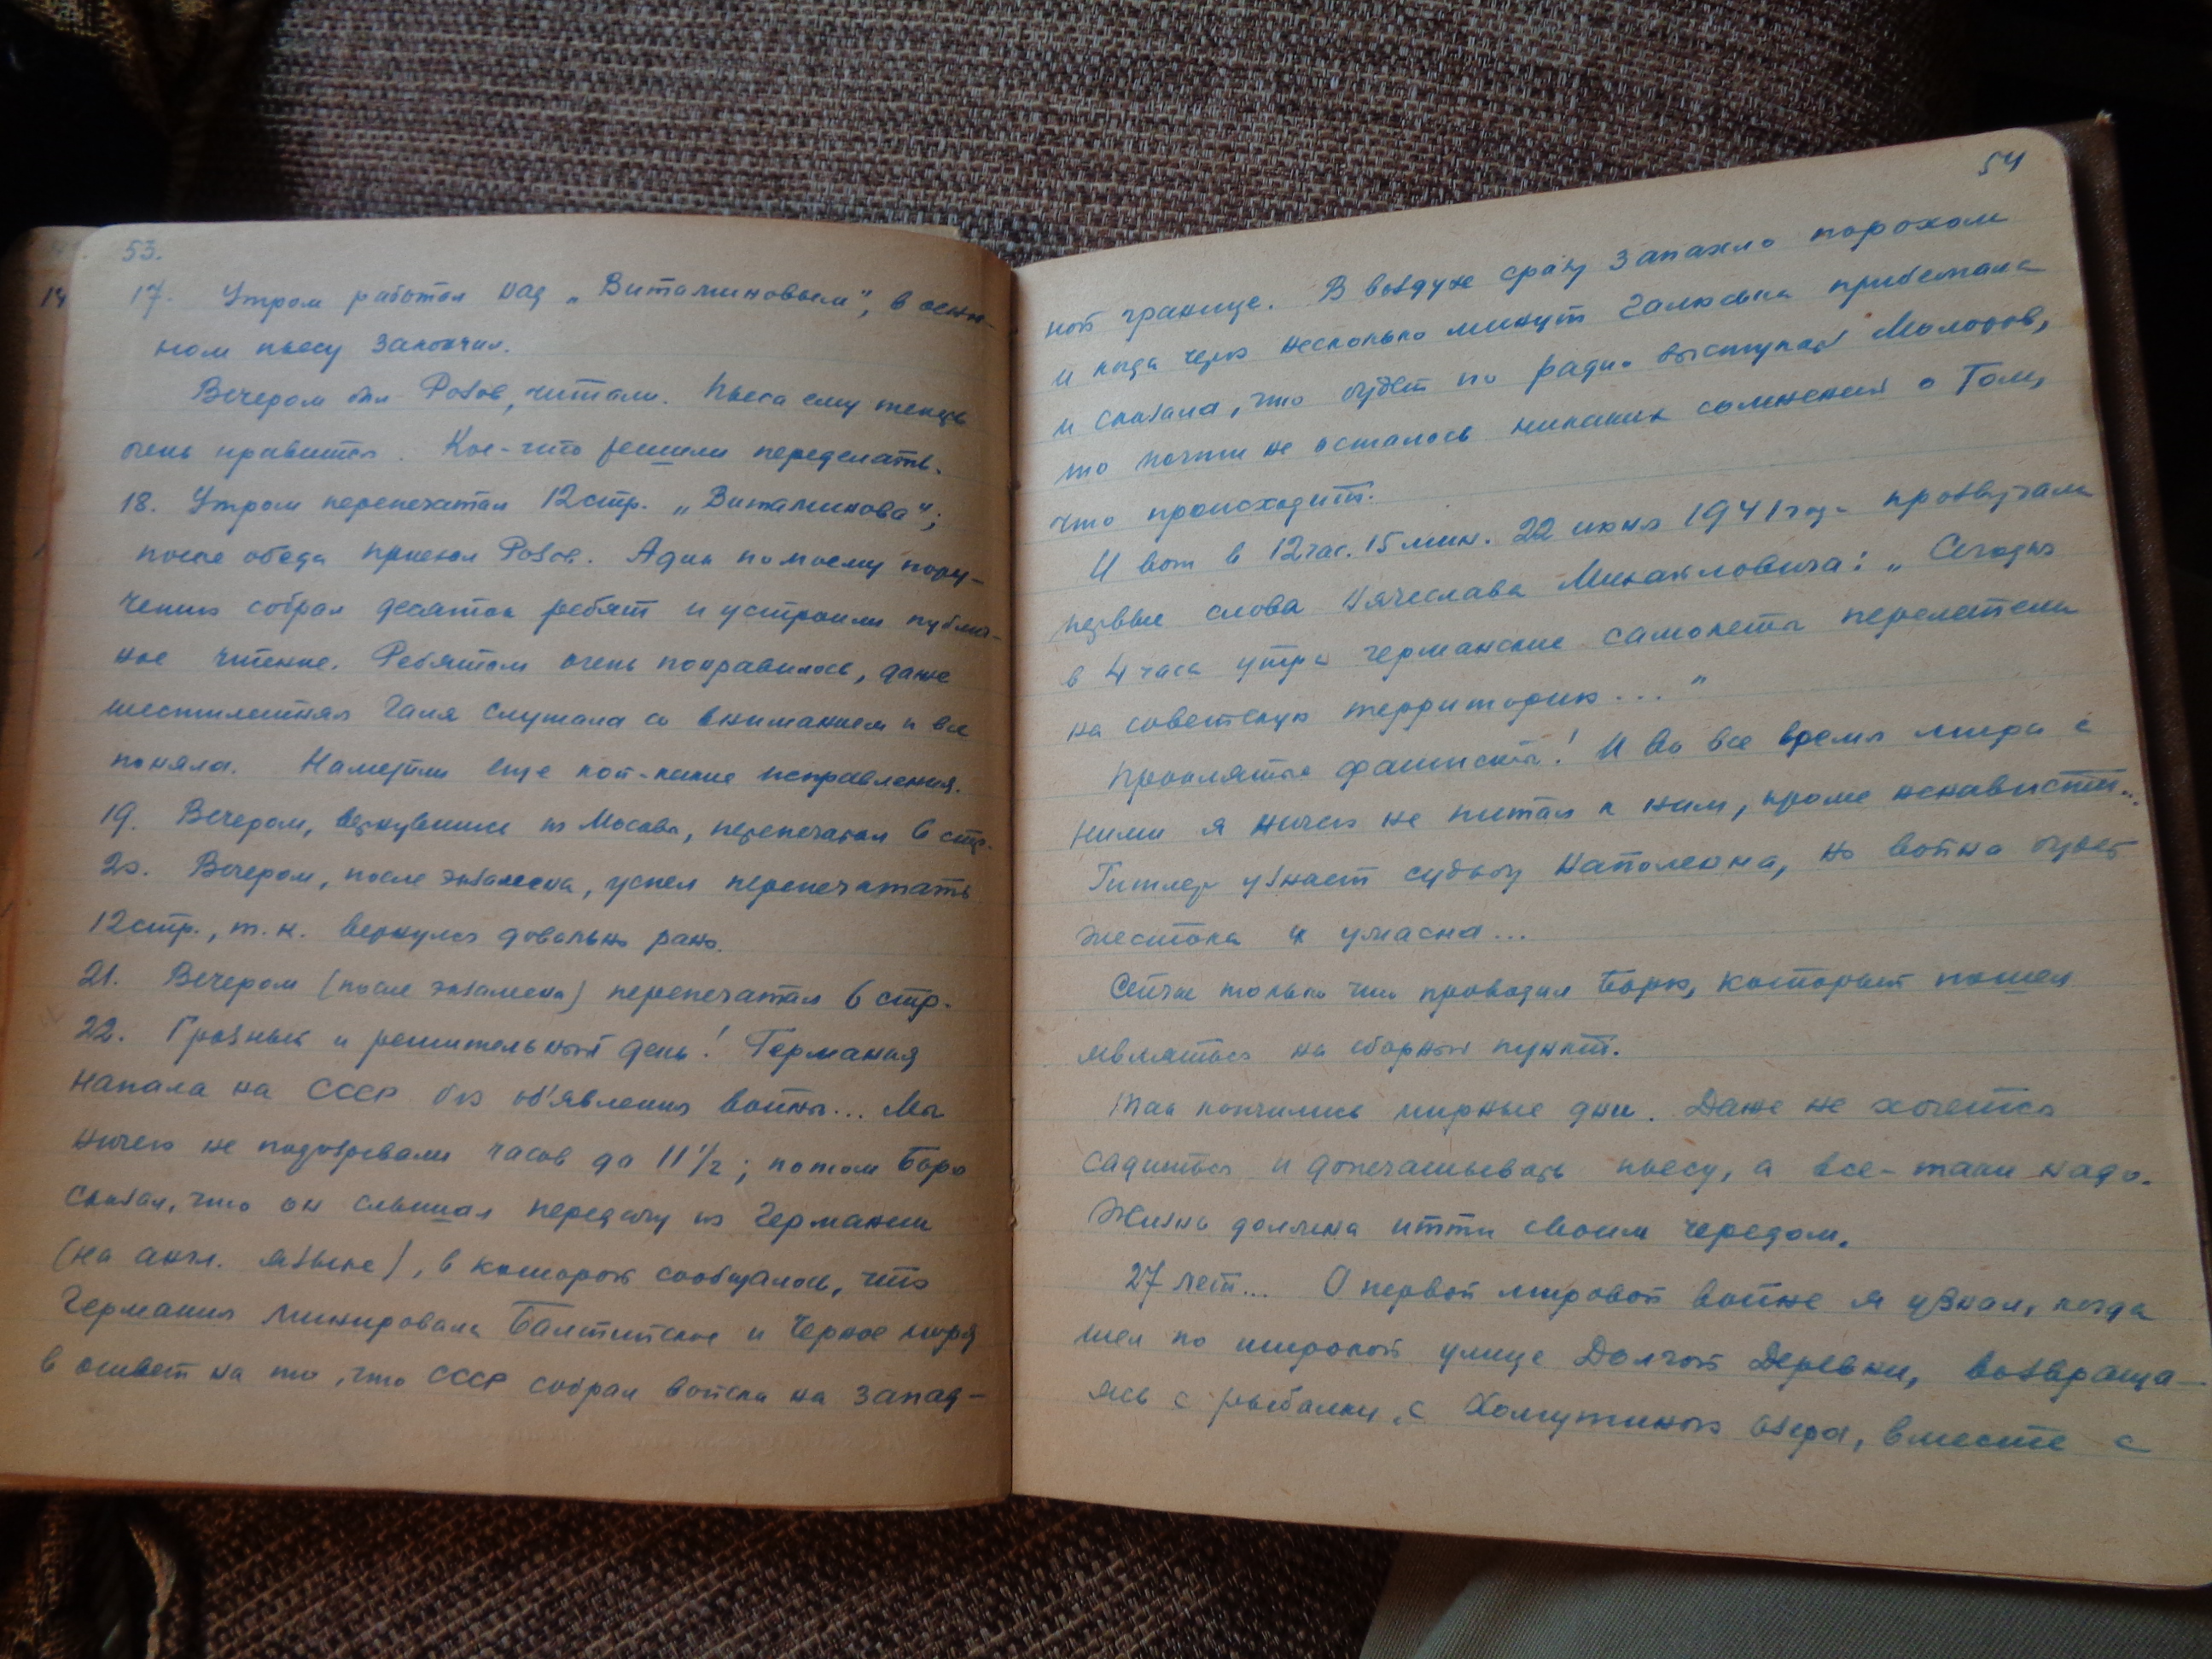 53.
17. Утром работал над „Витаминовым", в основ-
ном пьесу закончил.
Вечером был Розов, читали. Пьеса ему теперь
очень нравится. Кое-что решили переделать.
18. Утром перепечатал 12 стр. „Витаминова";
после обеда приехал Розов. Адик по моему пору-
чению собрал десяток ребят и устроили публич-
ное чтение. Ребятам очень понравилось, даже
шестилетняя Галя слушала со вниманием и все
поняла. Наметили еще кой-какие исправления.
19. Вечером, вернувшись из Москвы, перепечатал 6 стр.
20. Вечером, после экзамена, успел перепечатать
12 стр., т.к. вернулся довольно рано.
21. Вечером (после экзамена) перепечатал 6 стр.
22. Грозный и решительный день! Германия
напала на СССР без об'явления войны... Мы
ничего не подозревали часов до 11 1/2; потом Боря
сказал, что он слышал передачу из Германии
(на англ. языке), в которой сообщалось, что
Германия минировала Балтийское и Черное моря
в ответ на то, что СССР собрал войска на запад-
54
ной границе. В воздухе сразу запахло порохом
и когда через несколько минут Галюська прибежала
и сказала, что будет по радио выступать Молотов,
то почти не осталось никаких сомнений о том,
что происходит.
И вот в 12 час. 15 мин. 22 июня 1941 года прозвучали
первые слова Вячеслава Михайловича: „Сегодня
в 4 часа утра германские самолеты перелетели
на советскую территорию..."
Проклятые фашисты! И во все время мира с
ними я ничего не питал к ним, кроме ненависти...
Гитлер узнает судьбу Наполеона, но война будет
жестока и ужасна...
Сейчас только что проводил Борю, который пошел
являться на сборный пункт.
Так кончились мирные дни. Даже не хочется
садиться и допечатывать пьесу, а все-таки надо.
Жизнь должна итти своим чередом.
27 лет... О первой мировой войне я узнал, когда
шел по широкой улице Долгой Деревни, возвраща-
ясь с рыбалки, с Хомутиного озера, вместе с